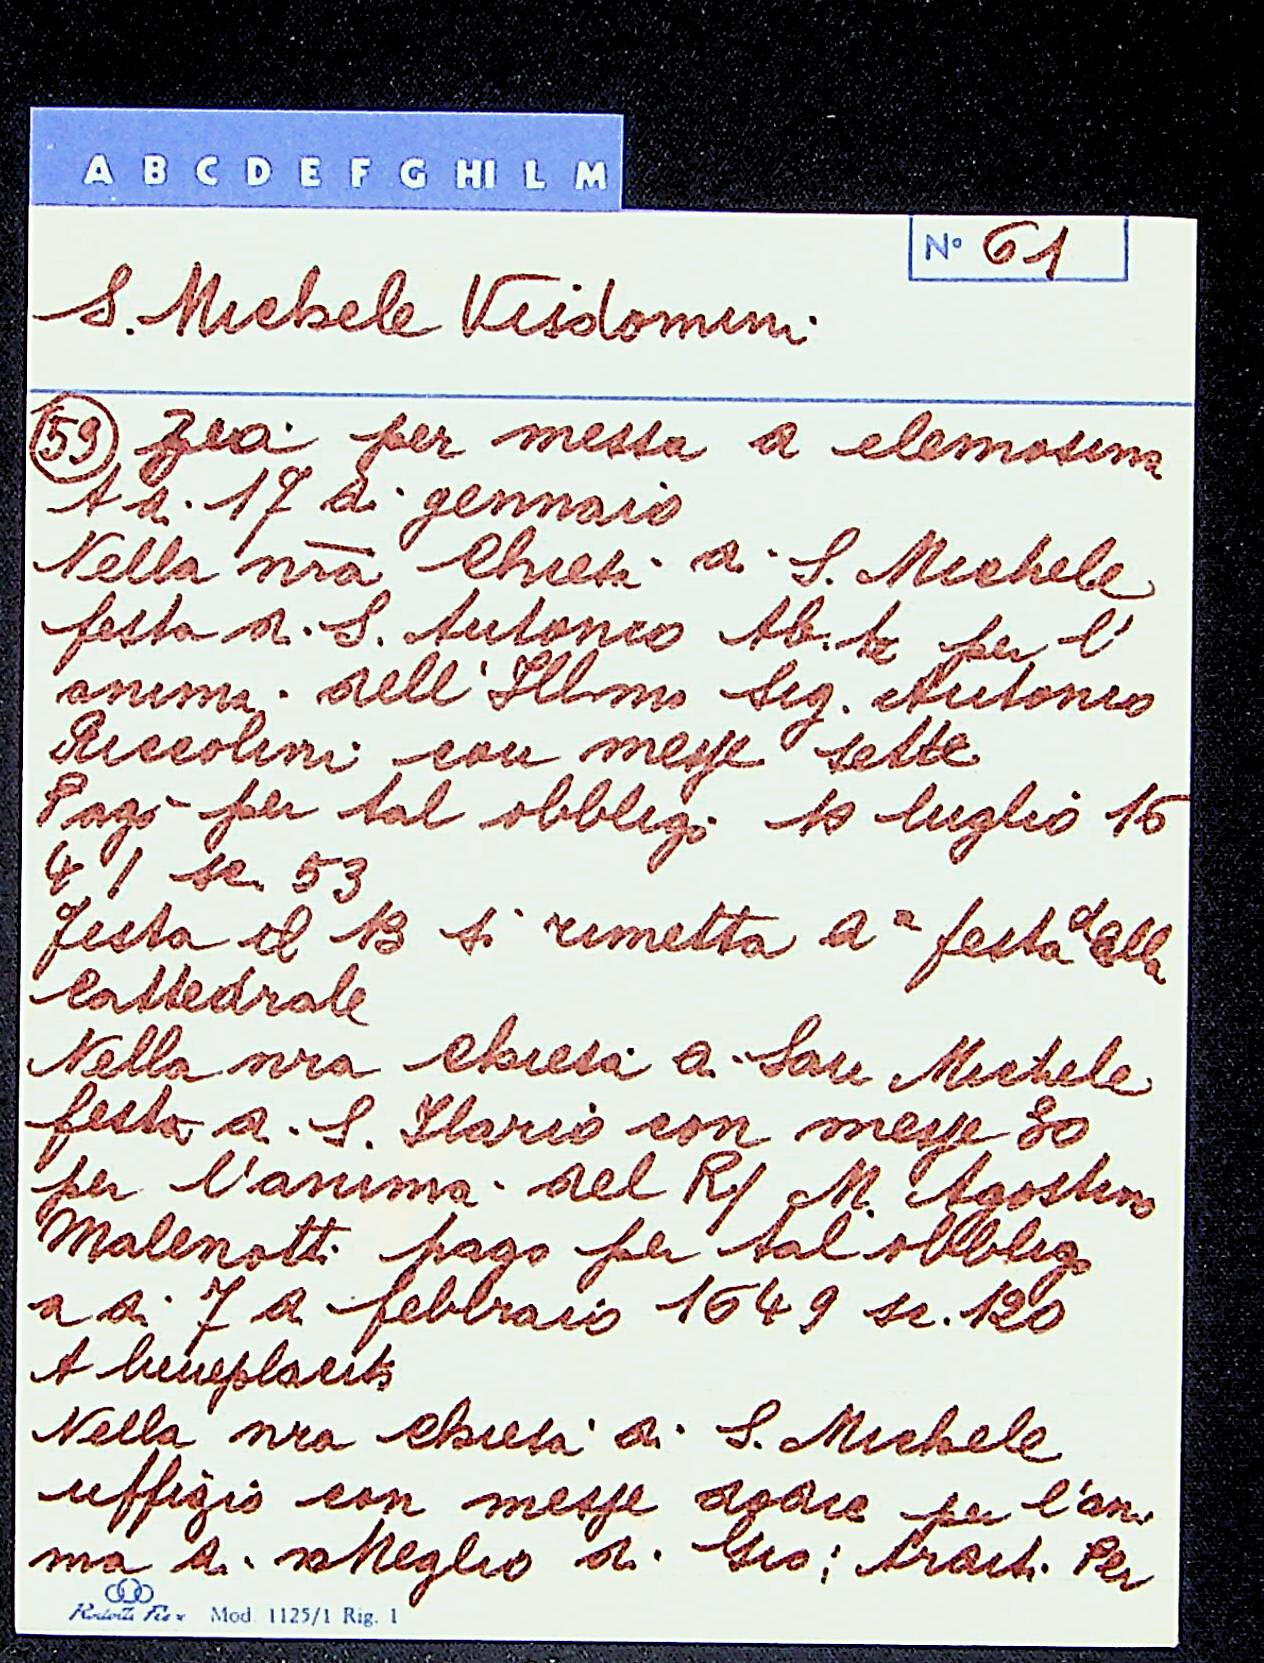 A B C D E F G HI L M
N° 61
S. Michele Visdomini
59 per messa a elemosina
A di 17 di gennaio
Nella nrā Chiesa di S. Michele
festa di S. Antonio Ab.te per l'
anima dell' Ill.mo Sig. Antonio
Riccolini con messe sette
Pagò per tal obbligo 10 luglio 16
41 sc. 53
festa il 13 si rimetta a festa della
Cattedrale
Nella nra Chiesa di San Michele
festa di S. Ilario con messe 30
per l'anima del R/ M. Agostino
Malenotti pago per tal obbligo
a di 7 di febbraio 1649 sc. 120
A beneplacito
Nella nra Chiesa di S. Michele
uffizio con messe dodici per l'ani
ma di Meglio di Gio: Per
Mod. 1125/1 Rig. 1